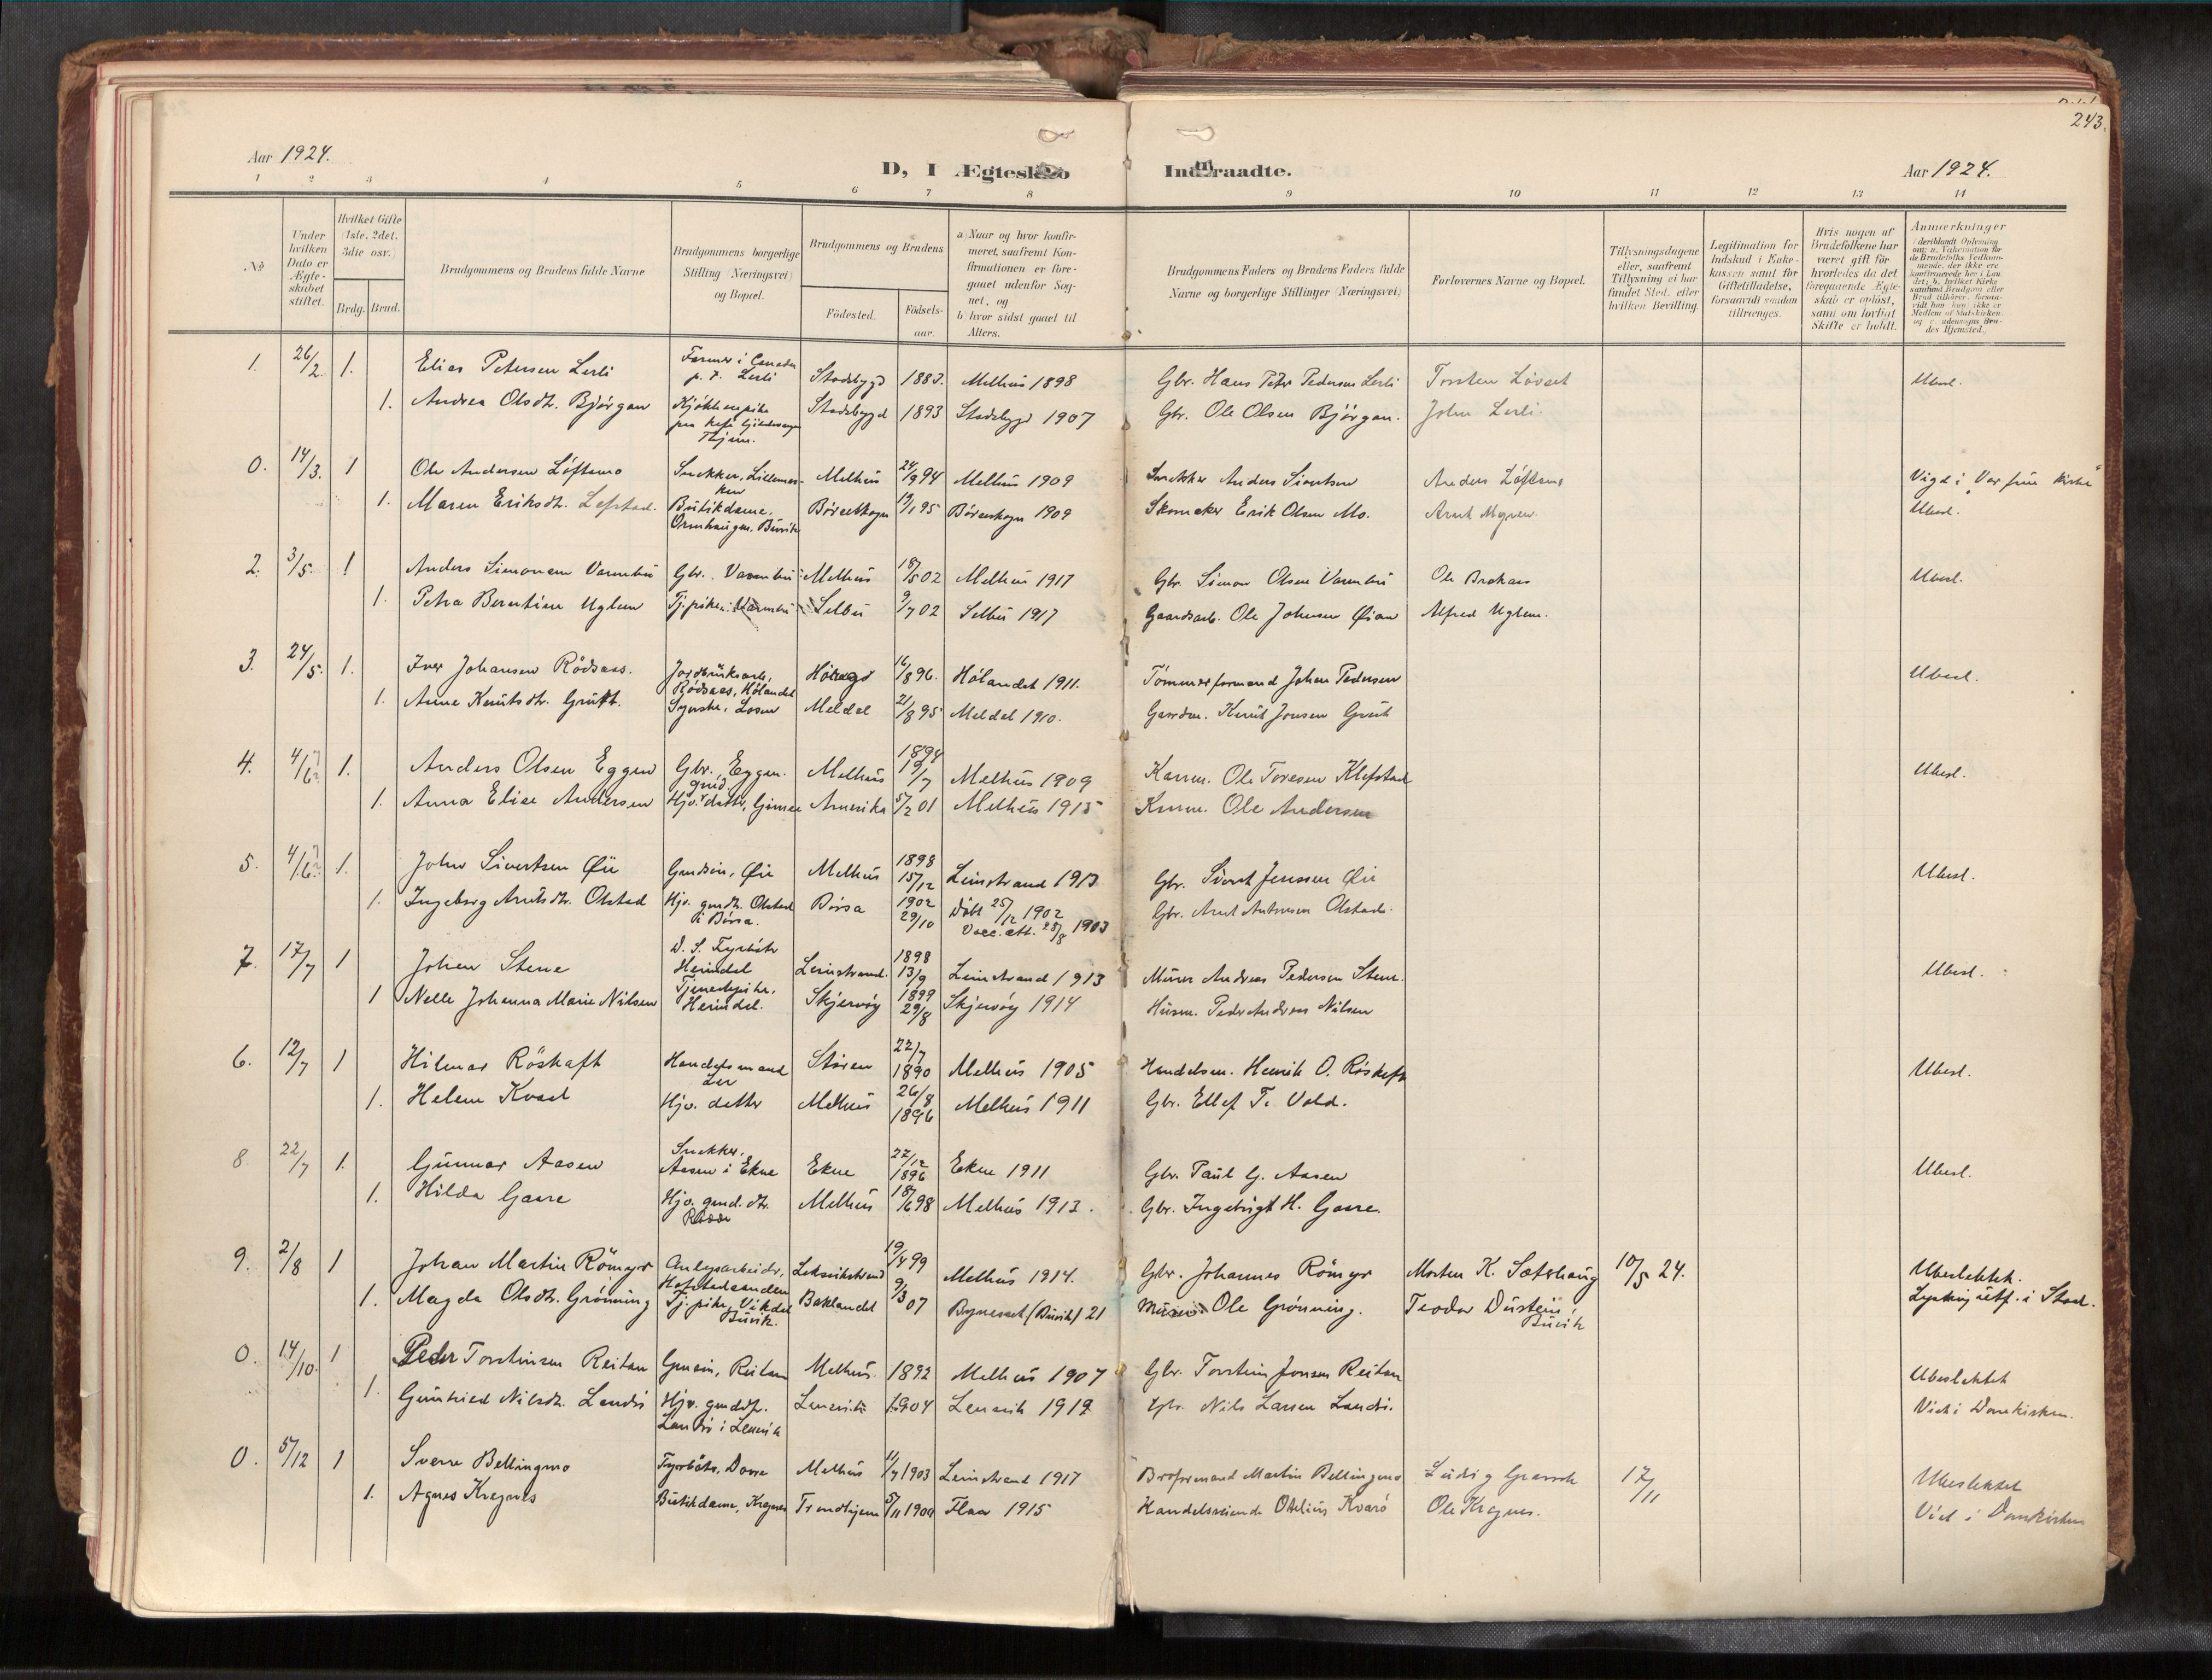 243.
Aar 1924.
D, I Ægteskab
Indtraadte.
Aar 1924.
1 2 3 4 5 6 7 8 9 10 11 12 13 14
No
Under hvilken Dato er Ægteskabet stiftet.
Hvilket Gifte (1ste, 2det, 3die osv.)
Brdg. Brud.
Brudgommens og Brudens fulde Navne
Brudgommens borgerlige Stilling (Næringsvei) og Bopæl.
Brudgommens og Brudens
Födested. Födselsaar.
a) Naar og hvor konfirmeret, saafremt Konfirmationen er foregaaet udenfor Sognet, og
b) hvor sidst gaaet til Alters.
Brudgommens Faders og Brudens Faders fulde Navne og borgerlige Stillinger (Næringsvei)
Forlovernes Navne og Bopæl.
Tillysningsdagene eller, saafremt Tillysning ei har fundet Sted, efter hvilken Bevilling.
Legitimation for Indskud i Enkekassen samt for Giftetilladelse, forsaavidt saadan tiltrænges.
Hvis nogen af Brudefolkene har været gift för hvorledes da det foregaaende Ægteskab er oplöst, samt om lovligt Skifte er holdt.
Anmerkninger
1. 26/2 1. Elias Petersen Lerli Farmer i Canada p. t. Lerli Stadsbygd 1883. Melhus 1898 Gbr. Hans Peter Pedersen Lerli Torsten Løvset Ubesl.
1. Andrea Olsdtr. Bjørgan Kjøkkenpike Stadsbygd 1893 Stadsbygd 1907 Gbr. Ole Olsen Bjørgan. John Lerli.
0. 14/3. 1 Ole Andersen Löftamo Snekker, Melhus 24/9 94 Melhus 1909 Snekker Anders Sivertsen Anders Löftamo Vigd i "Vor frue kirke"
1. Maren Eriksdtr. Lefstad. Butikdame, Børseskogn 19/1 95 Börseskogn 1909 Skomaker Erik Olsen Mo. Ubesl.
2. 3/5. 1 Anders Simonsen Varmbu Gbr. Varmbu Melhus 18/5 02 Melhus 1917 Gbr. Simon Olsen Varmbu Ole Brekaas Ubesl.
1. Petra Berntine Uglem Tj.pike Varmbu Selbu 9/7 02 Selbu 1917 Gaardsarb. Ole Johnsen Øian Alfred Uglem.
3. 24/5. 1. Iver Johansen Rödsaas. Jordbruksarb., Rödsaas, Hölandet 16/8 96. Hölandet 1911. Tömmerformand Johan Pedersen Ubesl.
1. Anne Knutsdtr. Grut. Syerske, Losen Meldal 21/8 95 Meldal 1910. Gaardm. Knut Jonsen Grut
4. 4/6 1. Anders Olsen Eggen Gbr., Eggen. Melhus 1894 19/7 Melhus 1909 Kaarm. Ole Toresen Klefstad Ubesl.
1. Anna Elise Andersen Hjv. datter, Gimse Amerika 5/2 01 Melhus 1915 Ole Andersen
5. 4/6 1. John Sivertsen Øie Gmdsön, Øie Melhus 1898 15/12 Leinstrand 1913 Gbr. Sivert Jenssen Øie Ubesl.
1. Ingeborg Arntsdtr. Olstad Hjv. gmdtr. Olstad i Börsa. Börsa 1902 29/10 Döbt 25/12 1902 Vacc.att. 28/8 1903 Gbr. Arnt Antonsen Olstad.
7. 17/7 1 Johan Stene D. S. Fyrböter Heimdal Leinstrand. 1898 13/9 Leinstrand 1913 Murer Andreas Pedersen Stene. Ubesl.
1 Nelle Johanna Marie Nilsen Tjenestepike, Heimdal. Skjervöy 1899 29/8 Skjervöy 1914 Husm. Peder Andreas Nilsen
6. 12/7 1 Hilmar Röskaft Handelsmand Ler Stören 22/7 1890 Melhus 1905 Handelsm. Henrik O. Röskaft Ubesl.
1. Helene Kvaal Hjv. datter Melhus 26/8 1896 Melhus 1911 Gbr. Ellef T. Vold.
8 22/7 1. Gunnar Aasen Snekker. Aasen i Ekne Ekne 22/12 1896 Ekne 1911 Gbr. Paul G. Aasen Ubesl.
1. Hilda Gaare Hjv. gmd. dtr. Melhus 18/6 98 Melhus 1913. Gbr. Ingebrigt H. Gaare.
9. 2/8 1 Johan Martin Römyr Anlegsarbeider, Leksvikstrand 19/4 99 Melhus 1914. Gbr. Johannes Römyr Morten K. Sæterhaug 10/5 24. Ubeslektet.
1. Magda Olsdtr. Grönning Tj.pike, Vikdal Buvik. Baklandet 9/3 07 Bynesset (Buvik) 21 Murer Ole Grönning. Teodor Dustein, Buvik Lysning utf. i Stad.
0. 14/10. 1 Peder Torsteinsen Reitan Gmsön, Reitan Melhus 1892 Melhus 1907 Gbr. Torstein Jonsen Reitan Ubeslektet
1. Gunhild Nilsdtr. Landrö Hjv. gmddtr. Landrö i Lensvik Lensvik 1904 Lensvik 1919 Gbr. Nils Larsen Landrö. Viet i Domkirken.
0. 5/12 1 Sverre Bellingmo Fyrböter, Melhus 11/7 1903 Leinstrand 1917 Martin Bellingmo Ludvig 17/11 Ubeslektet
1. Agnes Kregnes Butikdame, Kregnes Trondhjem 5/11 1900 Flaa 1915 Handelsreisende Otelius Kvarö Ole Kregnes. Viet i Domkirken